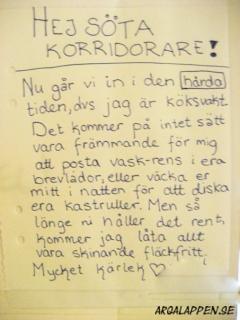 HEJ SÖTA
KORRIDORARE!
Nu går vi in i den hårda
tiden, dvs jag är köksvakt.
Det kommer på intet sätt
vara främmande för mig
att posta vask-rens i era
brevlådor, eller väcka er
mitt i natten för att diska
era kastruller. Men så
länge ni håller det rent,
kommer jag låta allt
vara skinande fläckfritt.
Mycket kärlek ♡
ARGALAPPEN.SE